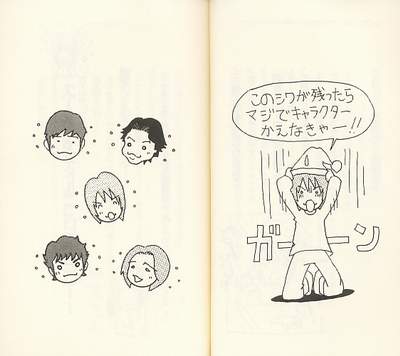 このシワが残ったら
マジでキャラクター
かえなきゃー!!
ガーーン